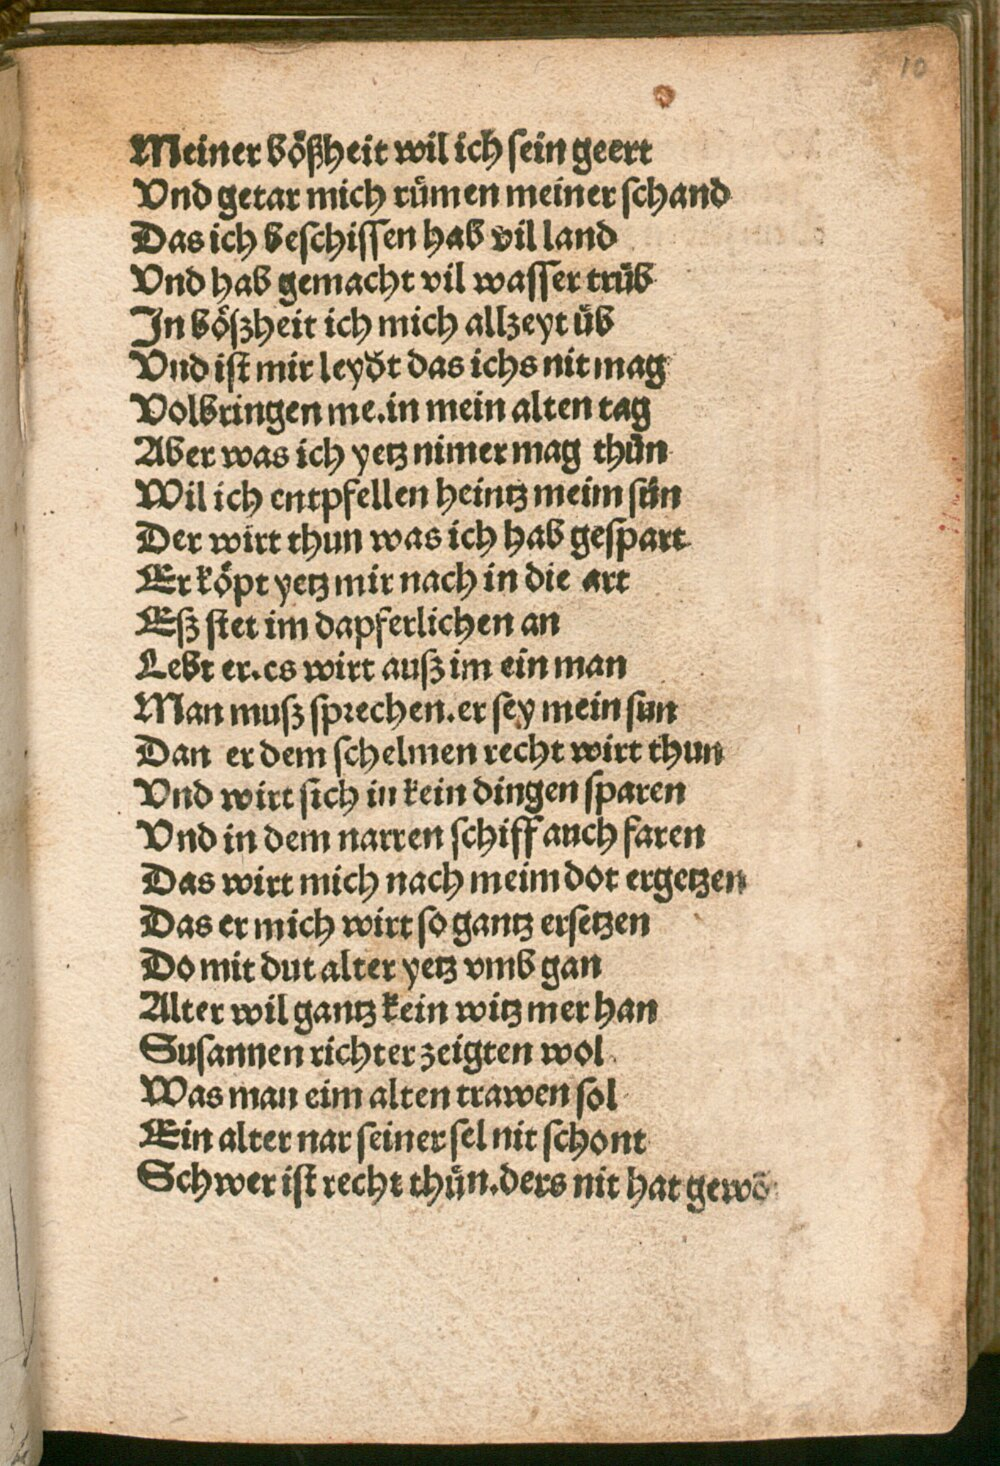 10
Meiner bößheit wil ich sein geert
Vnd getar mich rümen meiner schand
Das ich beschissen hab vil land
Vnd hab gemacht vil wasser trüb
In bößheit ich mich allzeyt üb
Vnd ist mir leydt das ichs nit mag
Volbringen me.in mein alten tag
Aber was ich yetz nimer mag thůn
Wil ich entpfellen heintz meim sůn
Der wirt thun was ich hab gespart
Er köpt yetz mir nach in die art
Eß stet im dapferlichen an
Lebt er.es wirt auß im ein man
Man muß sprechen.er sey mein sun
Dan er dem schelmen recht wirt thun
Vnd wirt sich in kein dingen sparen
Vnd in dem narren schiff auch faren
Das wirt mich nach meim dot ergetzen
Das er mich wirt so gantz ersetzen
Do mit dut alter yetz vmb gan
Alter wil gantz kein witz mer han
Susannen richter zeigten wol
Was man eim alten trawen sol
Ein alter nar seiner sel nit schont
Schwer ist recht thůn.ders nit hat gewō